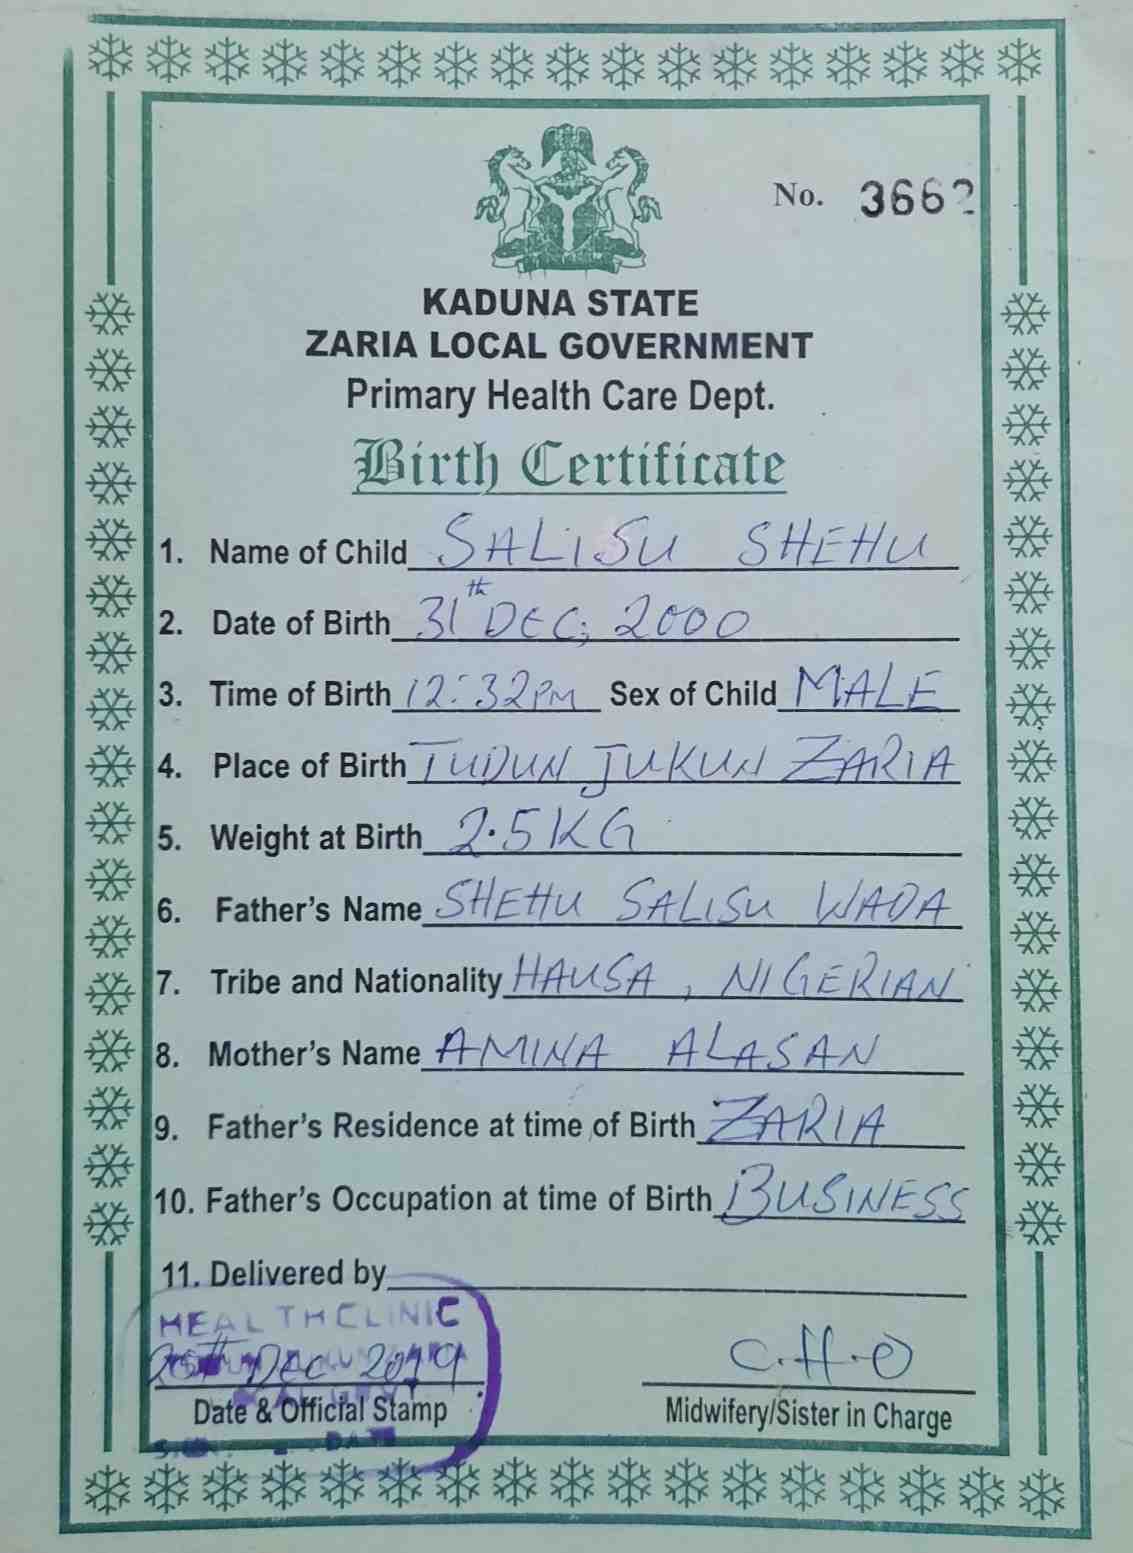 No. 3662
KADUNA STATE
ZARIA LOCAL GOVERNMENT
Primary Health Care Dept.
Birth Certificate
1. Name of Child SALISU SHEHU
2. Date of Birth 31th DEC, 2000
3. Time of Birth 12:32PM Sex of Child MALE
4. Place of Birth TUDUN JUKUN ZARIA
5. Weight at Birth 2.5KG
6. Father's Name SHEHU SALISU WADA
7. Tribe and Nationality HAUSA, NIGERIAN
8. Mother's Name AMINA ALASAN
9. Father's Residence at time of Birth ZARIA
10. Father's Occupation at time of Birth BUSINESS
11. Delivered by
HEALTH CLINIC
Dec 2019
C.H.O
Date & Official Stamp
Midwifery/Sister in Charge